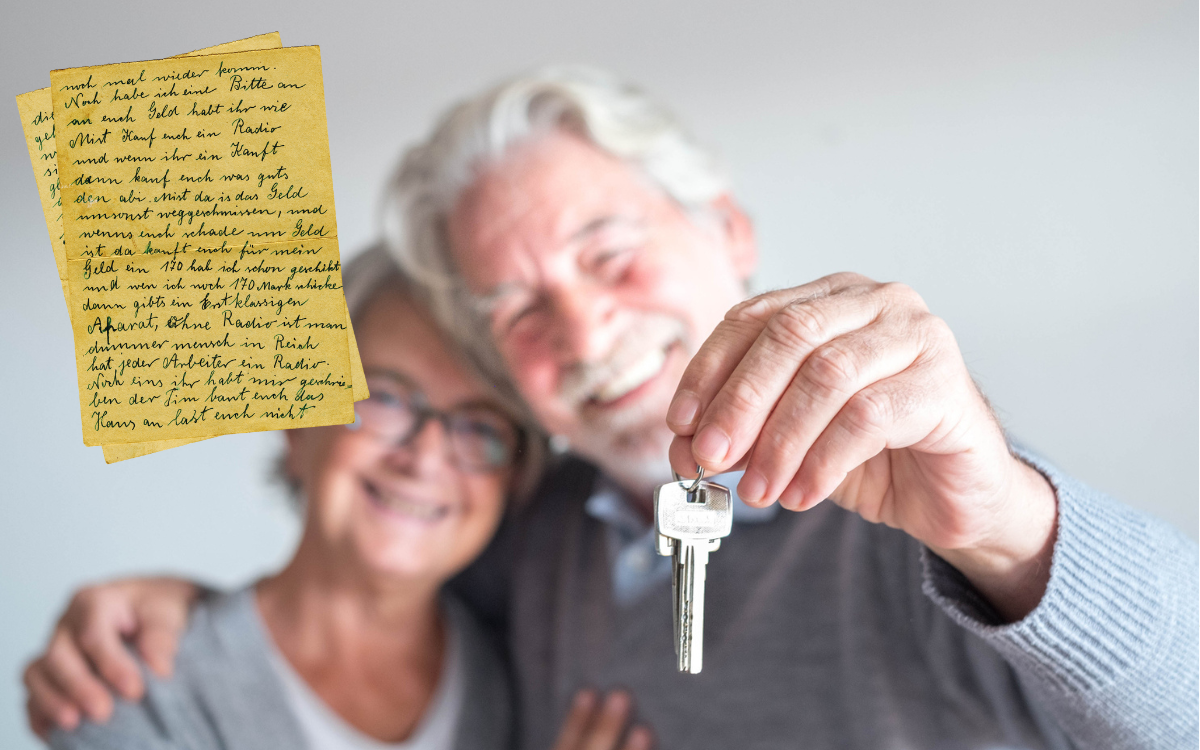 noch mal wieder komm.
Noch habe ich eine Bitte an
an euch Geld habt ihr wie
Mist Kauf euch ein Radio
und wenn ihr ein Kauft
dann kauf euch was guts
den abi. Mist da is das Geld
umsonst weggeschmissen, und
wenns euch schade um Geld
ist da kauft euch für mein
Geld ein 170 hab ich schon geschikt
und wen ich noch 170 Mark schicke
dann gibts ein Erstklassigen
Aparat, Ohne Radio ist man
dummer mensch in Reich
hat jeder Arbeiter ein Radio.
Noch eins ihr habt mir geschrie
ben der Tim baut euch das
Haus an last euch nicht
die